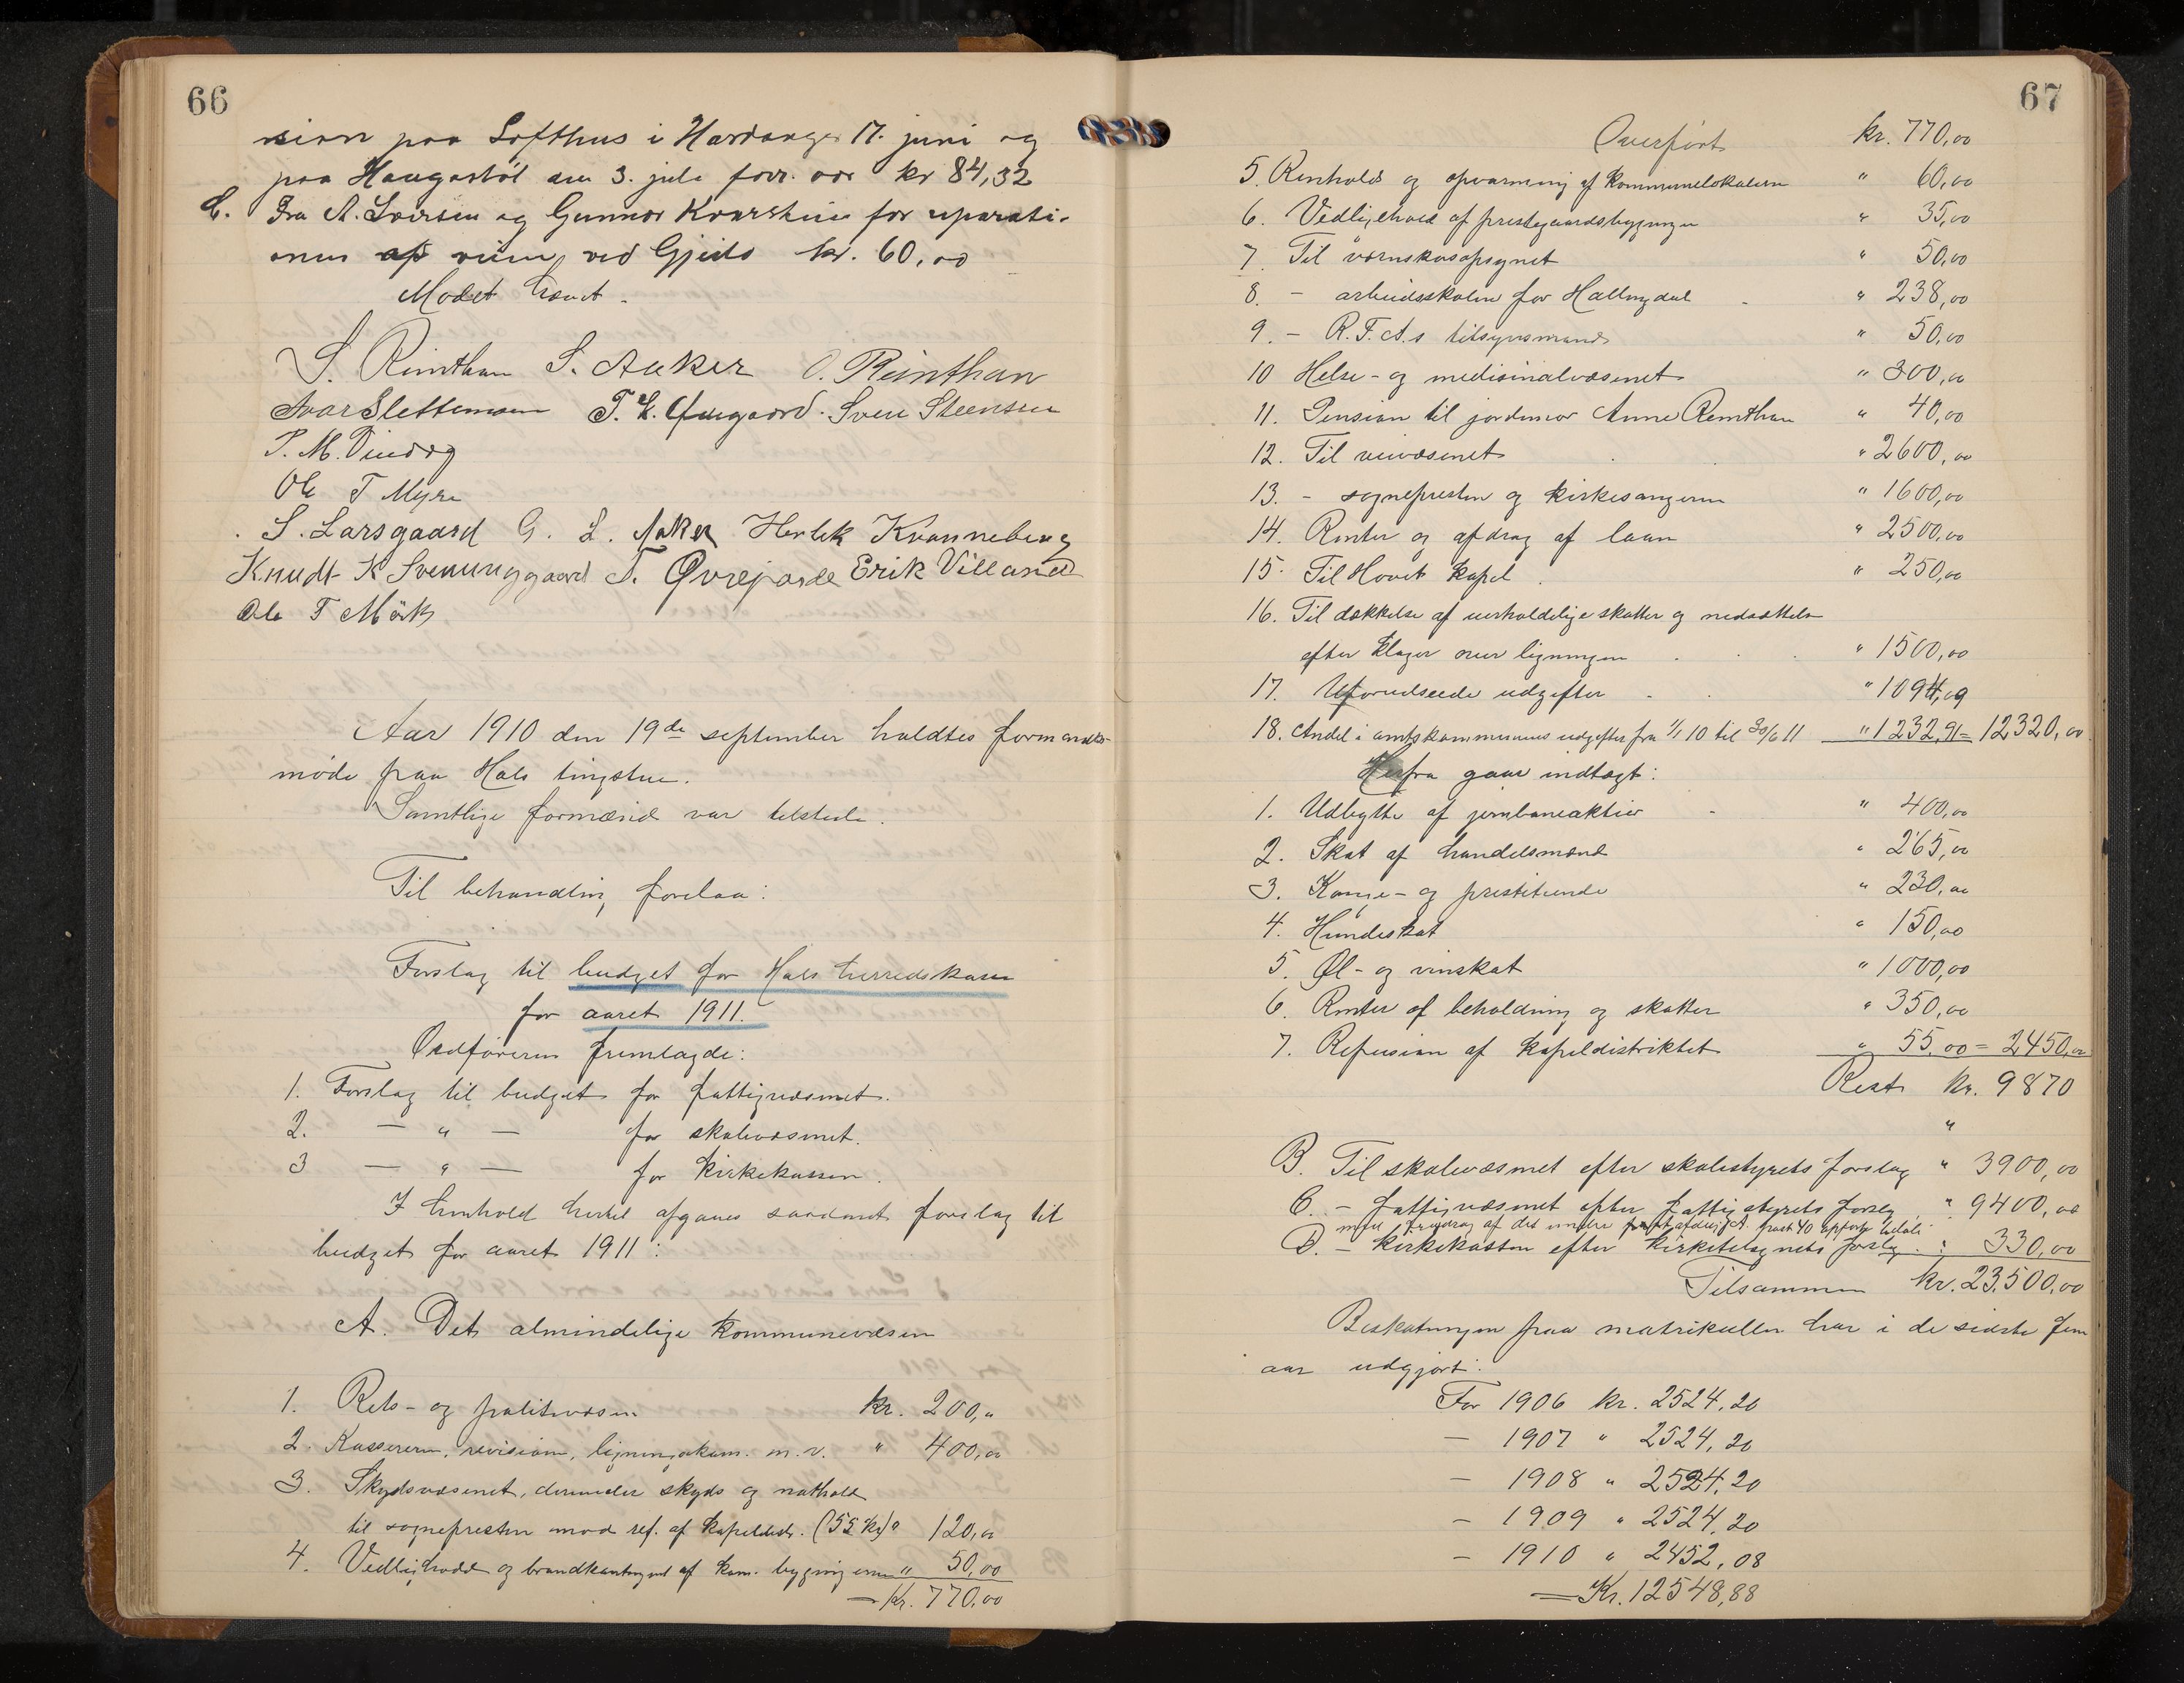 66
sion paa Lofthus i Hardanger 17. juni og
paa Haugastøl den 3. juli forr. aar kr 84,32
C. Fra A. Sversen og Gunnar for reparati-
oner af veien ved Gjeilo kr. 60,00
Mødet hævet.
S. Rimthan S. Aaker O. Reinthan
Ivar Slettemoen T. L. Sven Steensen
P. M. Tindog
Ole T Myre
S. Larsgaard G. L. Aaker Herlek Kvanneberg
Knudt K Svenunggaard T. Øvrejorde Erik Villand
Ole T Mørk
Aar 1910 den 19de september holdtes formandss-
møde paa Hols tingstue.
Samtlige formænd var tilstede.
Til behandling forelaa:
Forslag til budget for Hols herredskasse
for aaret 1911.
Ordføreren fremlagde:
1. Forslag til budget for fattigvæsenet.
2. — " — for skolevæsenet.
3 — " — for kirkekassen.
I henhold hertil afgaves saadant forslag til
budget for aaret 1911:
A. Det almindelige kommunevæsen
1. Rets- og politivæsen kr. 200,"
2. Kassereren, revision, ligningskom. m. v. " 400,00
3. Skydsvæsenet, derunder skyds og nathold
til sognepresten mod ref. af kapeldistr. (55 kr) " 120,00
4. Vedligehold og brandkontingent af kom. bygningerne " 50,00
— Kr. 770,00
67
Overført kr. 770,00
5. Renhold og opvarming af kommunelokalerne " 60,00
6. Vedligehold af prestegaardsbygninger " 35,00
7. Til værnskasopsynet " 50,00
8. - arbeidsskolen for Hallingdal " 238,00
9. - R.F.A.s tilsynsmand " 50,00
10 Helse- og medisinalvæsenet " 300,00
11. Pension til jordmor Anne Reinthan " 40,00
12. Til veivæsenet " 2600,00
13. - sognepresten og kirkesangeren " 1600,00
14. Renter og afdrag af laan " 2500,00
15. Til Hovet kapel " 250,00
16. Til dækkelse af uerholdelige skatter og nedsættelse
efter klager over ligningen " 1500,00
17. Uforudseede udgifter " 1094,09
18. Andel i amtskommunens udgifter fra 1/1 10 til 30/6 11 " 1232,91 = 12320,00
Herfra gaar indtægt:
1. Udbytte af jernbaneaktier " 400,00
2. Skat af handelsmænd " 265,00
3. Konge- og prestetiende " 230,00
4. Hundeskat " 150,00
5. Øl- og vinskat " 1000,00
6. Renter af beholdning og skatter " 350,00
7. Refusion af kapeldistriktet " 55,00 = 2450,00
Rest kr. 9870
"
B. Til skolevæsenet efter skolestyrets forslag " 3900,00
C. - fattigvæsenet efter fattigstyrets forslag " 9400,00
med fradrag af det under post 40
D. - kirkekassen efter kirketilsynets forslag " 330,00
Tilsammen kr. 23,500,00
Beskatningen paa matrikullen har i de sidste fem
aar udgjort:
For 1906 kr. 2524,20
— 1907 " 2524,20
— 1908 " 2524,20
— 1909 " 2524,20
— 1910 " 2452,08
= Kr. 12548,88